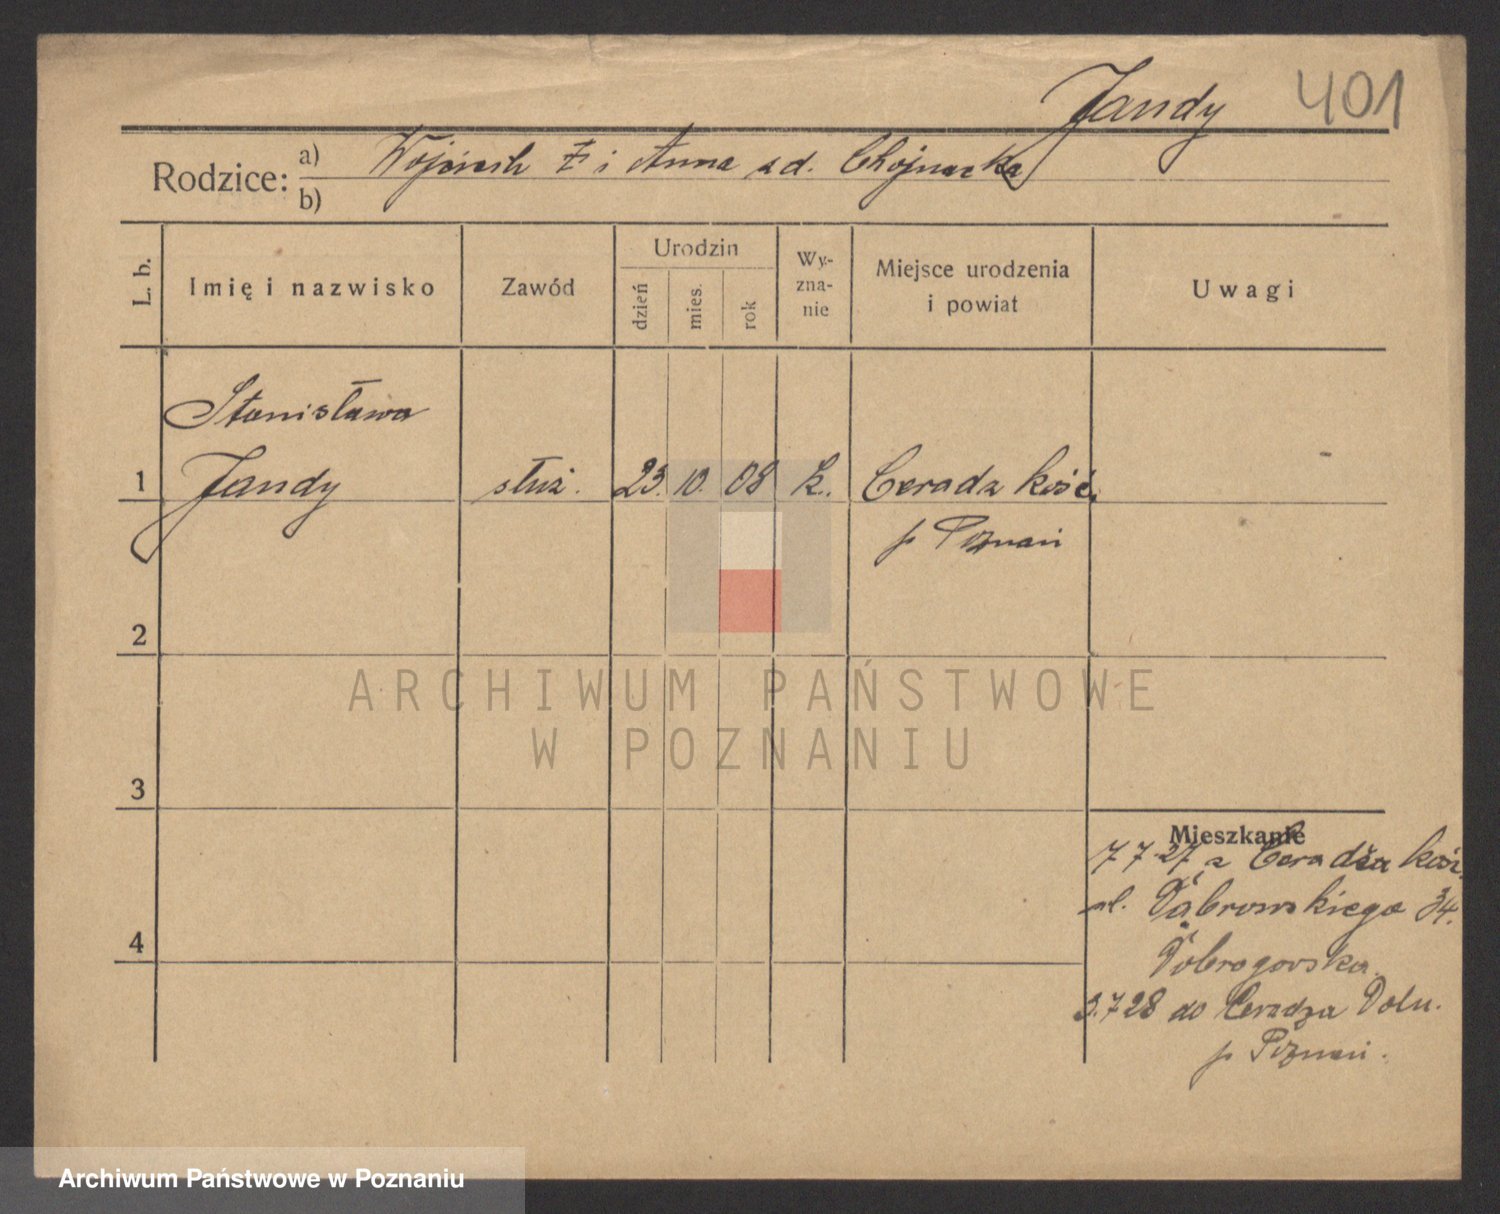 Jandy 401
Rodzice: a) Wojciech Ł i Anna z d. Chojnacka
b)
L. b. Imię i nazwisko Zawód Urodzin dzień mies. rok Wy-zna-nie Miejsce urodzenia i powiat Uwagi
Stanisława
1 Jandy służ. 23. 10. 08 k. Ceradz kość.
p Poznań
2
ARCHIWUM PAŃSTWOWE
W POZNANIU
3
Mieszkanie
7 7 27 z Ceradza kość.
ul. Dąbrowskiego 34.
4
Dobrogowska
3.7 28 do Ceradza Doln.
p Poznań.
Archiwum Państwowe w Poznaniu